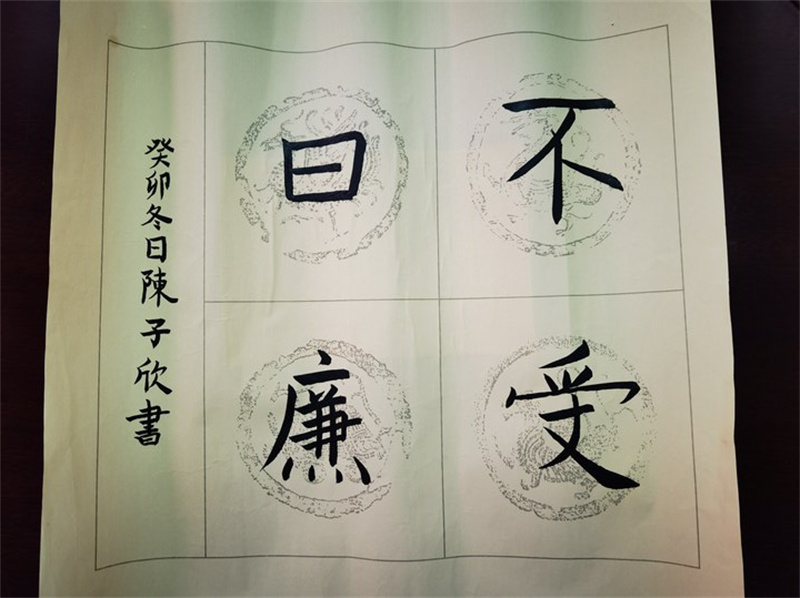 不受
曰廉
癸卯冬日陳子欣書